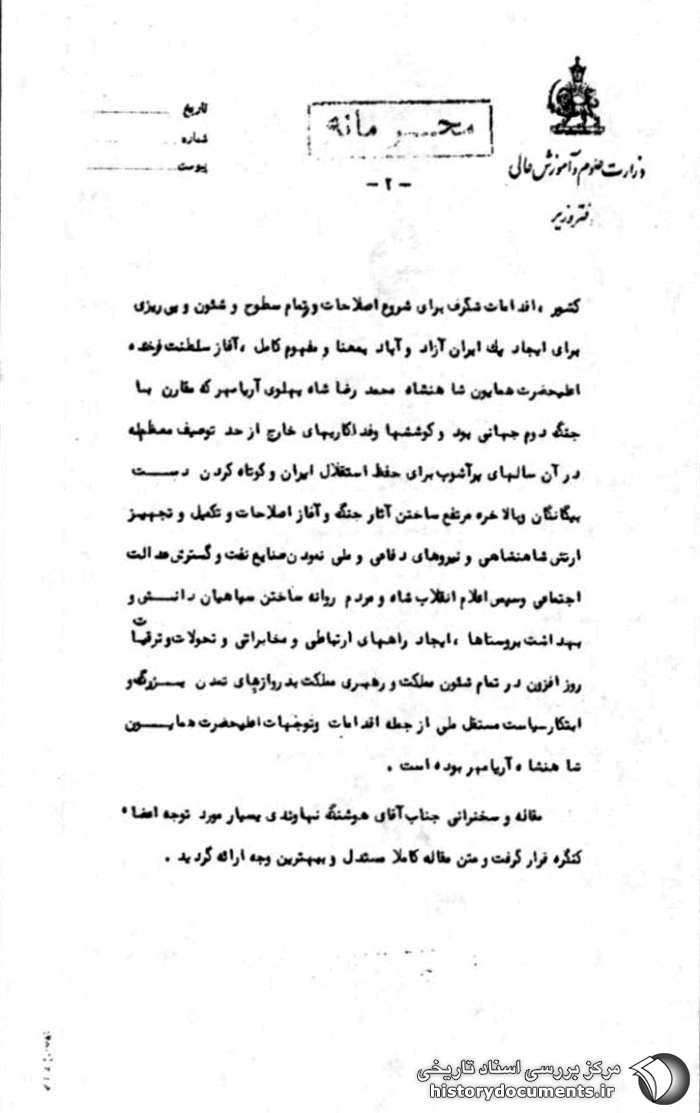 محرمانه
تاریخ
شماره
پیوست
وزارت علوم و آموزش عالی
دفتر وزیر
- ۲ -
کشور ، اقدامات شگرف برای شروع اصلاحات و تمام سطوح و شئون و پی ریزی
برای ایجاد یك ایران آزاد و آباد بمعنا و مفهوم کامل ، آغاز سلطنت فرخنده
اعلیحضرت همایون شاهنشاه محمد رضا شاه پهلوی آریامهر که مقارن با
جنگ دوم جهانی بود و کوششها و فداکاریهای خارج از حد توصیف معظم‌له
در آن سالهای پرآشوب برای حفظ استقلال ایران و کوتاه کردن دست
بیگانگان وبالاخره مرتفع ساختن آثار جنگ و آغاز اصلاحات و تکمیل و تجهیز
ارتش شاهنشاهی و نیروهای دفاعی و ملی نمودن صنایع نفت و گسترش عدالت
اجتماعی وسپس اعلام انقلاب شاه و مردم روانه ساختن سپاهیان دانش و
بهداشت بروستاها ، ایجاد راههای ارتباطی و مخابراتی و تحولات و ترقیات
روز افزون در تمام شئون مملکت و رهبری مملکت بدروازهای تمدن بزرگ و
ابتکار سیاست مستقل ملی از جمله اقدامات وتوجهات اعلیحضرت همایون
شاهنشاه آریامهر بوده است .
مقاله و سخنرانی جناب آقای هوشنگ نهاوندی بسیار مورد توجه اعضاء
کنگره قرار گرفت و متن مقاله کاملا مستدل و ببهترین وجه ارائه گردید .
مرکز بررسی اسناد تاریخی
historydocuments.ir